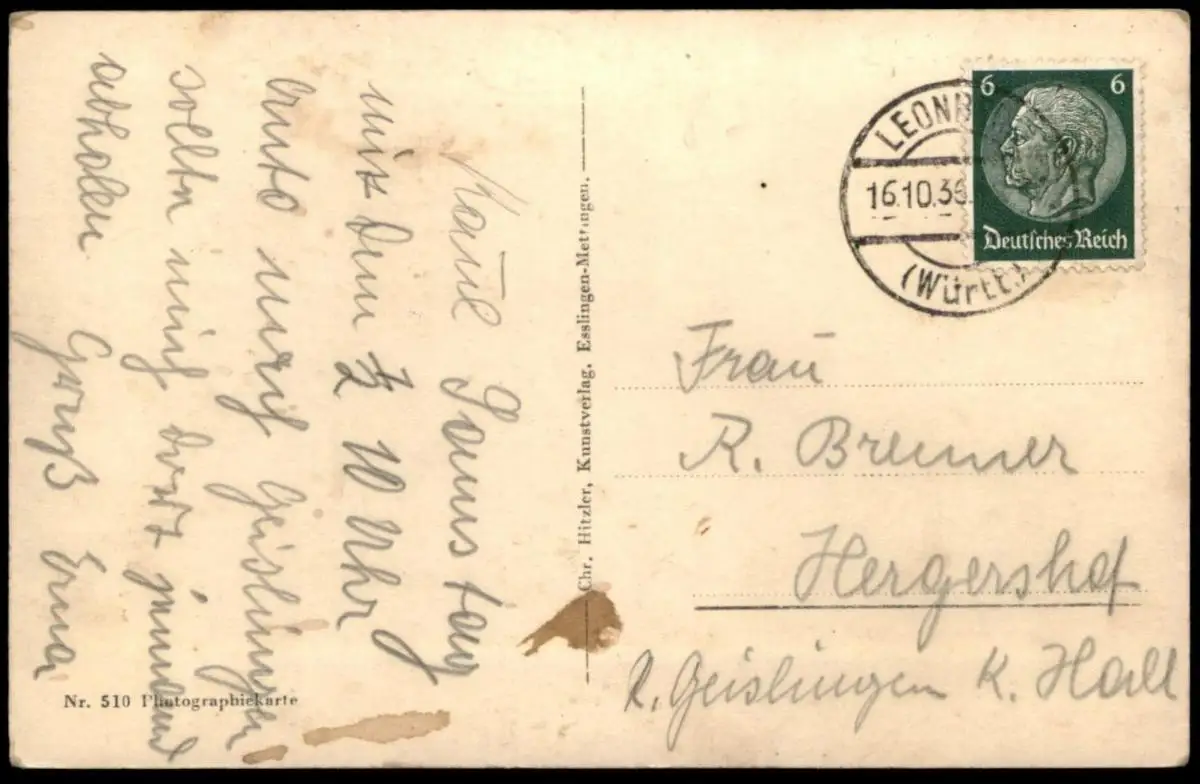 Samstag
mit dem
½ 10 Uhr
Auto nach Geislingen
sollte mich dort jemand
abholen Gruß Erna
Chr. Hitzler, Kunstverlag, Esslingen-Mettingen.
Nr. 510 Photographiekarte
LEONB
16.10.36.
(Württ.)
6 6
Deutsches Reich
Frau
R. Brenner
Hergershof
Geislingen K. Hall